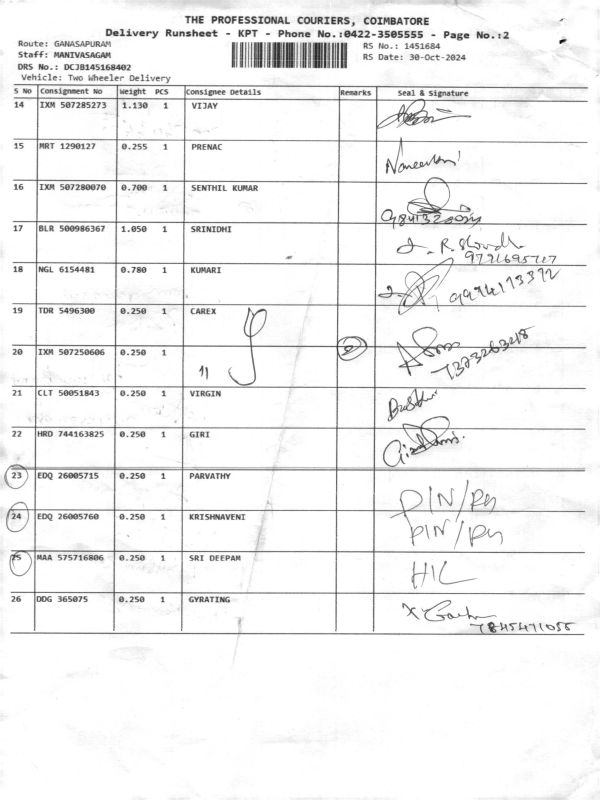 THE PROFESSIONAL COURIERS, COIMBATORE
Delivery Runsheet - KPT - Phone No.:0422-3505555 - Page No.:2
Route: GANASAPURAM
Staff: MANIVASAGAM
DRS No.: DCJB145168402
Vehicle: Two Wheeler Delivery
RS No.: 1451684
RS Date: 30-Oct-2024
S No Consignment No Weight PCS Consignee Details Remarks Seal & Signature
14 IXM 507285273 1.130 1 VIJAY
15 MRT 1290127 0.255 1 PRENAC
16 IXM 507280070 0.700 1 SENTHIL KUMAR
17 BLR 500986367 1.050 1 SRINIDHI
18 NGL 6154481 0.780 1 KUMARI 9994173372
19 TDR 5496300 0.250 1 CAREX
20 IXM 507250606 0.250 1 11 7373263218
21 CLT 50051843 0.250 1 VIRGIN
22 HRD 744163825 0.250 1 GIRI
23 EDQ 26005715 0.250 1 PARVATHY PIN/RH
24 EDQ 26005760 0.250 1 KRISHNAVENI PIN/RH
25 MAA 575716806 0.250 1 SRI DEEPAM HIL
26 DDG 365075 0.250 1 GYRATING 7845471055